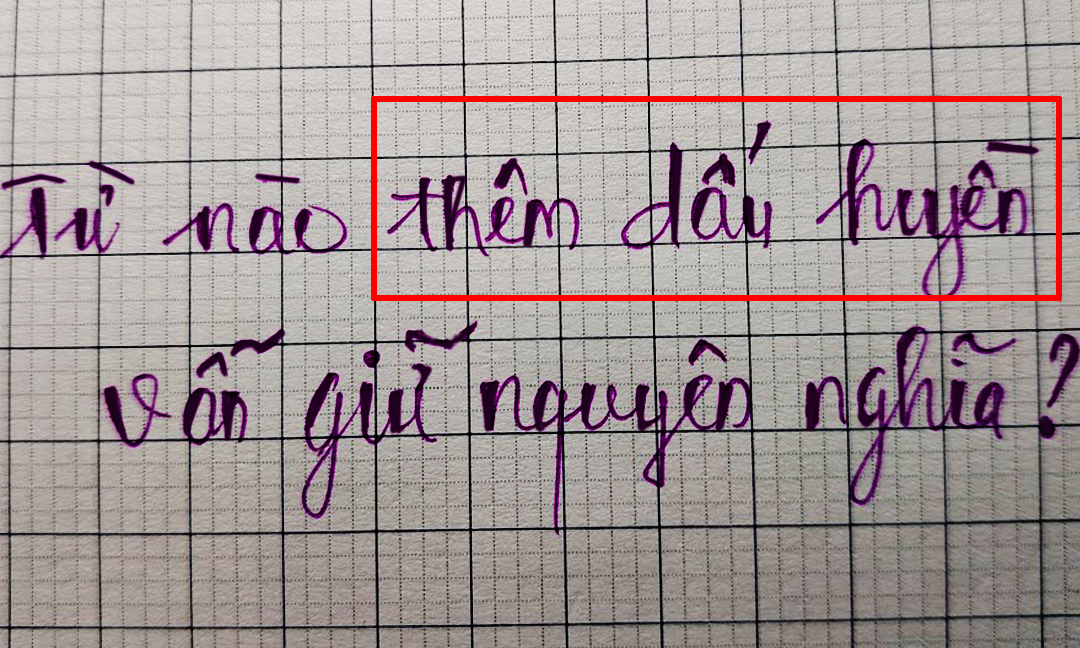 Từ nào thêm dấu huyền
vẫn giữ nguyên nghĩa?